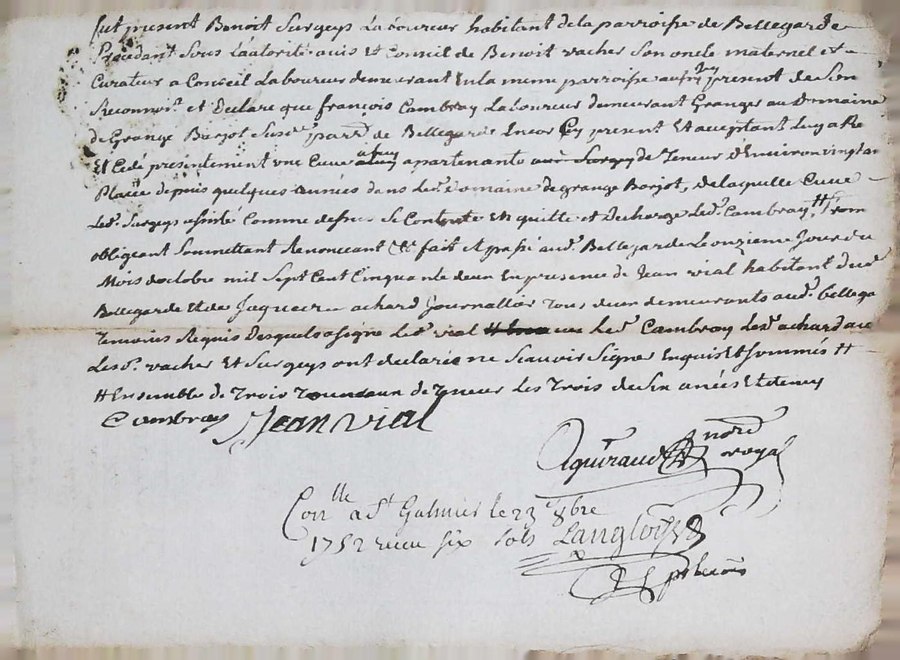 fut present Benoit Surgeys Laboureur habitant de la parroisse de Bellegarde
Procedant Sous Lautorité avis et Conseil de Benoit vacher Son oncle maternel et
Curateur a Conseil Laboureur demeurant En la meme parroisse present de Son
et Declare que françois Cambray Laboureur demeurant Granger au Domaine
de Grange Borjot parr. de Bellegarde Encor Cy present Et acceptant Luy a Re
Et Cedé presentement une Cuve apartenante Surgey de Teneur d'Environ vingt an
Placée depuis quelques années dans Led. Domaine de grange Borjot, de laquelle Cuve
Led. Surgeys Comme Se Contente Et quitte et decharge Led. Cambray ++ prom
obligeant Soumettant Renoncant &c fait et passé aud. Bellegarde Le onzieme Jour du
Mois doctobre mil Sept Cent Cinquante deux En presence de Jean vial habitant dud.
Bellegarde Et de Jaques achard Journallier Tous deux demeurants aud. bellega
Temoins Requis Desquels a signé Led. vial avec Led. Cambray Led. achard
Lesd. vacher Et Surgeys ont declarés ne Scavoir Signer Enquis Et Sommés ++
++ Ensemble de Trois Tonneaux de Teneur Les Trois de Six anées
Cambray Jean vial
nore
roya
Con.lle a St Galmier le 23 8bre
1752 recu six sols Langlois